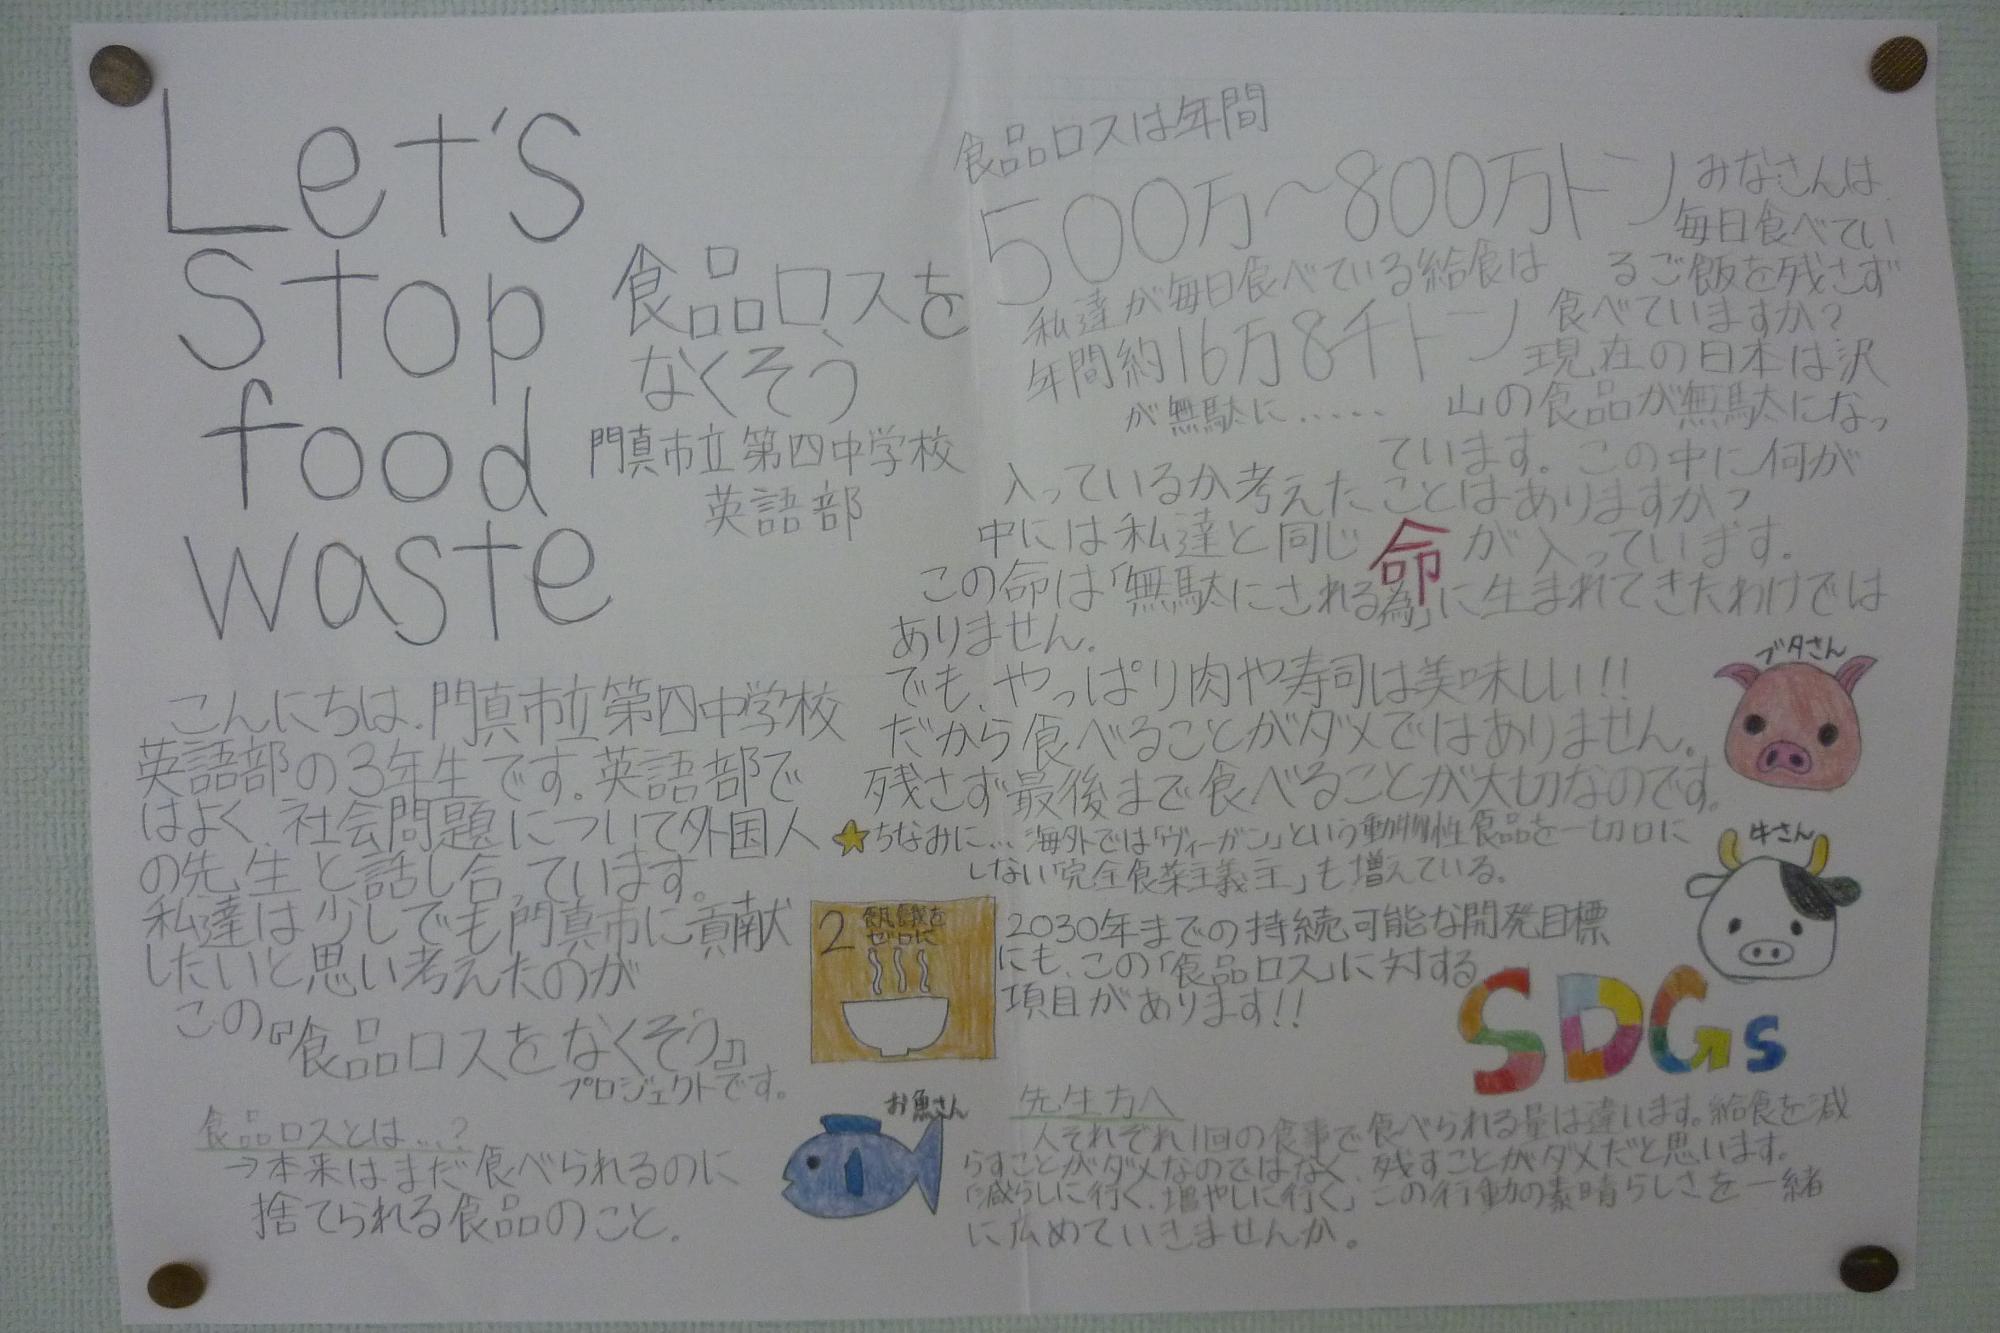 Let's
Stop
food
waste
食品ロスを
なくそう
門真市立第四中学校
英語部
こんにちは.門真市立第四中学校
英語部の3年生です.英語部で
はよく、社会問題について外国人
の先生と話し合っています。
私達は少しでも門真市に貢献
したいと思い考えたのが
この『食品ロスをなくそう』
プロジェクトです。
食品ロスとは…?
→本来はまだ食べられるのに
捨てられる食品のこと.
食品ロスは年間
500万〜800万トン
私達が毎日食べている給食は
年間約16万8千トン
が無駄に.....
みなさんは
毎日食べてい
るご飯を残さず
食べていますか?
現在の日本は沢
山の食品が無駄になっ
ています。この中に何が
入っているか考えたことはありますか?
中には私達と同じ命が入っています.
この命は「無駄にされる為」に生まれてきたわけでは
ありません.
でも、やっぱり肉や寿司は美味しい!!
だから食べることがダメではありません.
残さず最後まで食べることが大切なのです.
ちなみに…海外では「ヴィーガン」という動物性食品を一切口に
しない「完全食菜主義主」も増えている。
ブタさん
牛さん
2 飢餓を
ゼロに
2030年までの持続可能な開発目標
にも、この「食品ロス」に対する
項目があります!!
SDGs
お魚さん
先生方へ
人それぞれ1回の食事で食べられる量は違います。給食を減
らすことがダメなのではなく、残すことがダメだと思います。
「減らしに行く、増やしに行く」この行動の素晴らしさを一緒
に広めていきませんか。